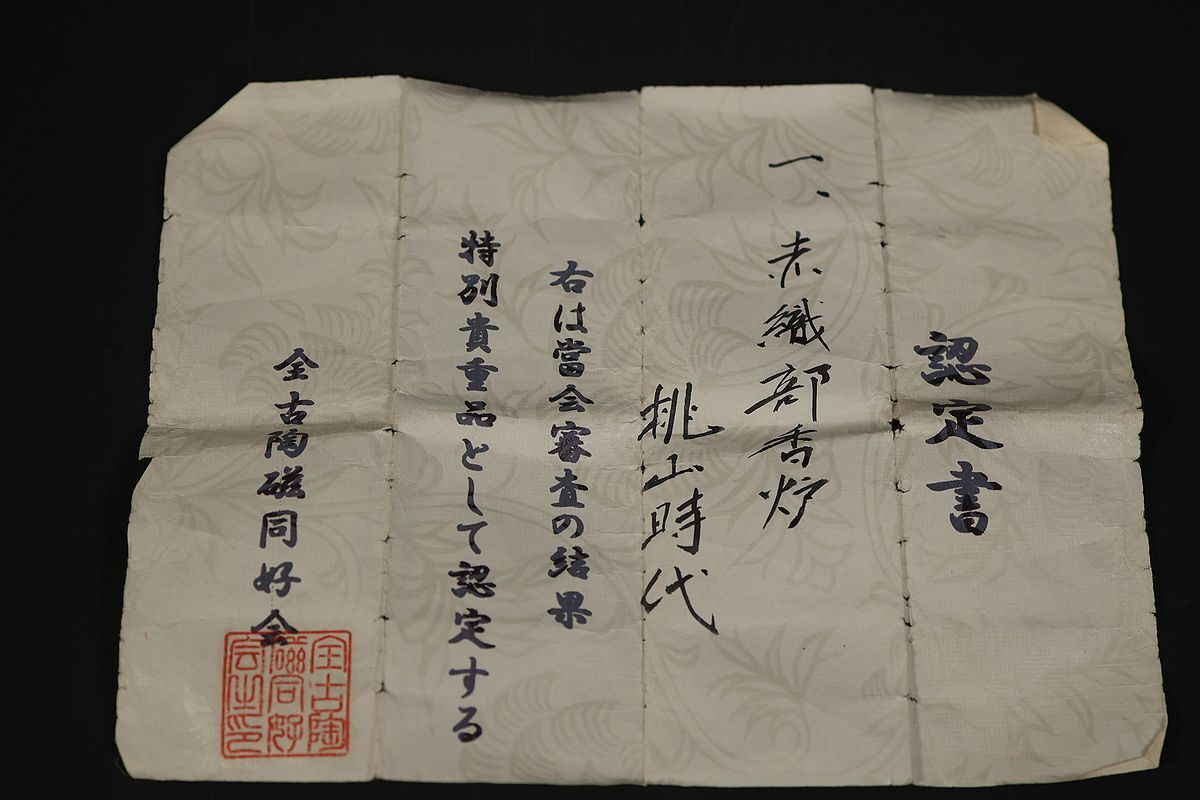 認定書
一、赤織部香炉
桃山時代
右は當会審査の結果
特別貴重品として認定する
全古陶磁同好会
全古陶
磁同好
会之印